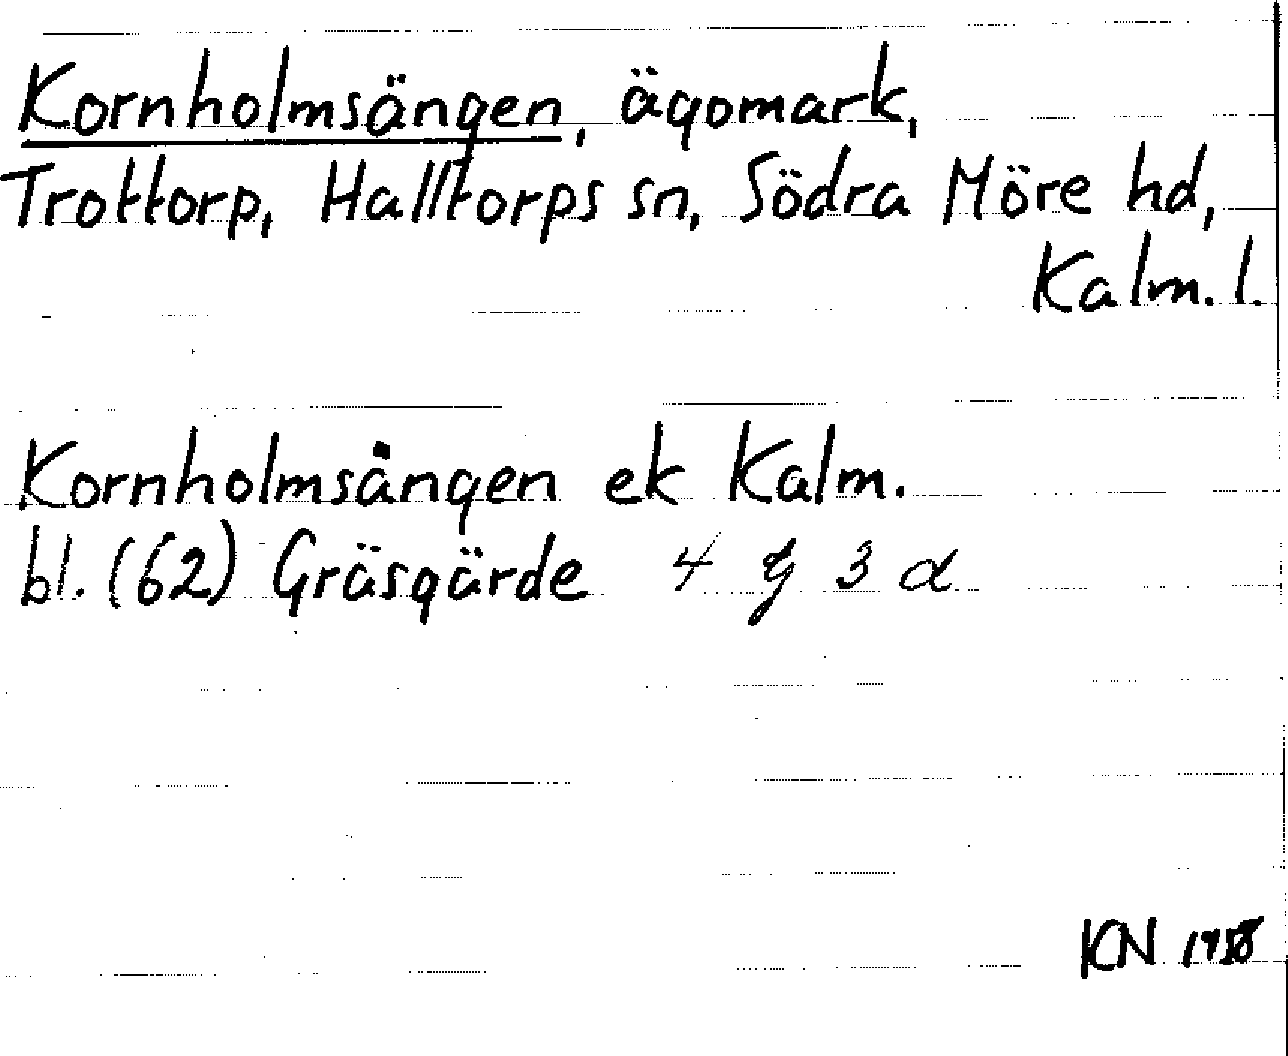 Kornholmsängen, ägomark,
Trottorp, Halltorps sn, Södra Möre hd,
Kalm. l.
Kornholmsängen ek Kalm.
bl. (62) Gräsgärde 4 g 3 d
KN 1958